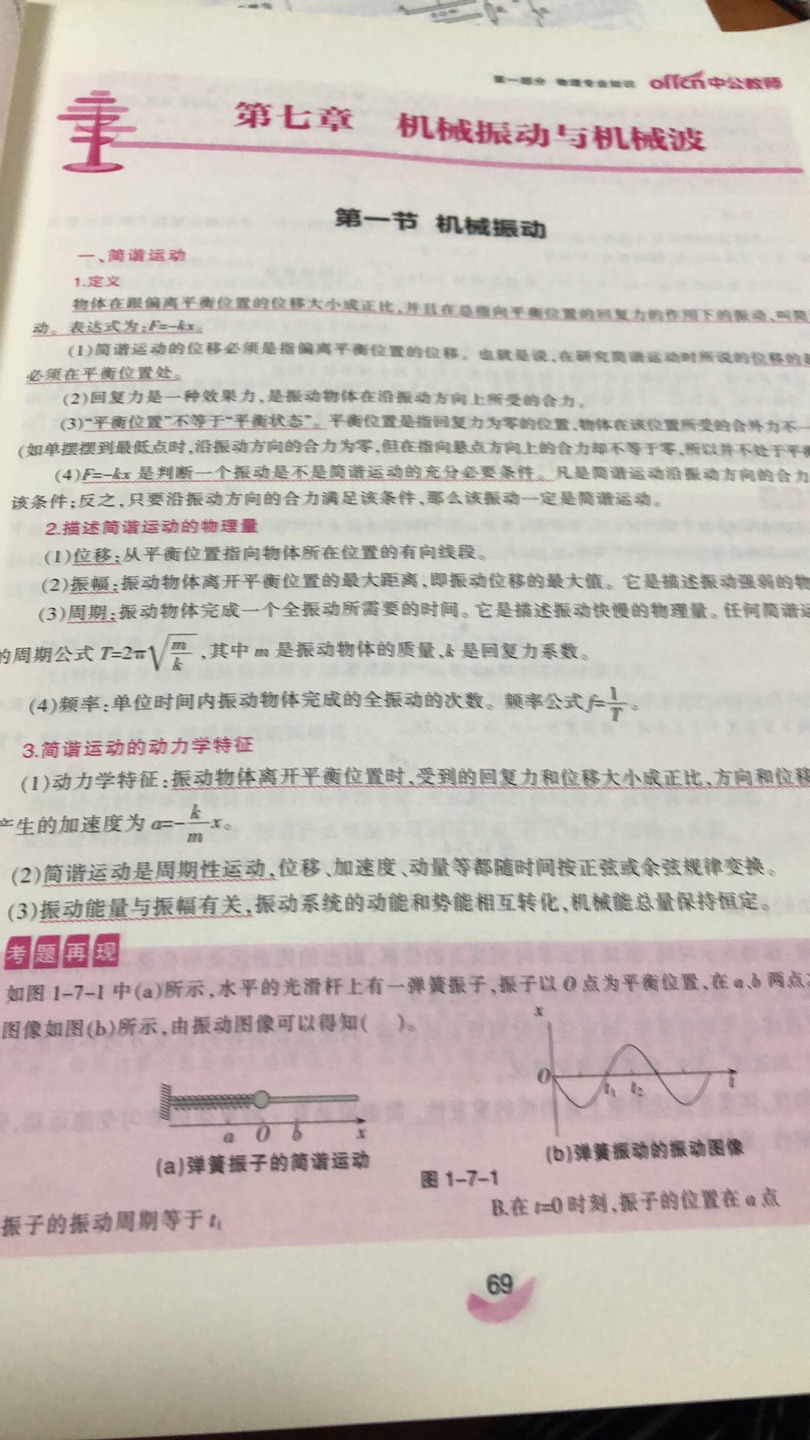 第一部分 物理专业知识 offcn中公教师
第七章 机械振动与机械波
第一节 机械振动
一、简谐运动
1.定义
物体在跟偏离平衡位置的位移大小成正比,并且在总指向平衡位置的回复力的作用下的振动,叫简
动。表达式为:F=-kx。
(1)简谐运动的位移必须是指偏离平衡位置的位移。也就是说,在研究简谐运动时所说的位移的
必须在平衡位置处。
(2)回复力是一种效果力,是振动物体在沿振动方向上所受的合力。
(3)“平衡位置”不等于“平衡状态”。平衡位置是指回复力为零的位置,物体在该位置所受的合外力不一
(如单摆摆到最低点时,沿振动方向的合力为零,但在指向悬点方向上的合力却不等于零,所以并不处于平
(4)F=-kx 是判断一个振动是不是简谐运动的充分必要条件。凡是简谐运动沿振动方向的合力
该条件;反之,只要沿振动方向的合力满足该条件,那么该振动一定是简谐运动。
2.描述简谐运动的物理量
(1)位移:从平衡位置指向物体所在位置的有向线段。
(2)振幅:振动物体离开平衡位置的最大距离,即振动位移的最大值。它是描述振动强弱的物
(3)周期:振动物体完成一个全振动所需要的时间。它是描述振动快慢的物理量。任何简谐运
的周期公式 T=2π√(m/k),其中 m 是振动物体的质量,k 是回复力系数。
(4)频率:单位时间内振动物体完成的全振动的次数。频率公式 f=1/T。
3.简谐运动的动力学特征
(1)动力学特征:振动物体离开平衡位置时,受到的回复力和位移大小成正比,方向和位移
产生的加速度为 a=-k/m x。
(2)简谐运动是周期性运动,位移、加速度、动量等都随时间按正弦或余弦规律变换。
(3)振动能量与振幅有关,振动系统的动能和势能相互转化,机械能总量保持恒定。
考题再现
如图 1-7-1 中(a)所示,水平的光滑杆上有一弹簧振子,振子以 O 点为平衡位置,在 a、b 两点
图像如图(b)所示,由振动图像可以得知( )。
a O b x
x O t₁ t₂ t
(a)弹簧振子的简谐运动
(b)弹簧振动的振动图像
图 1-7-1
振子的振动周期等于 t₁
B.在 t=0 时刻,振子的位置在 a 点
69